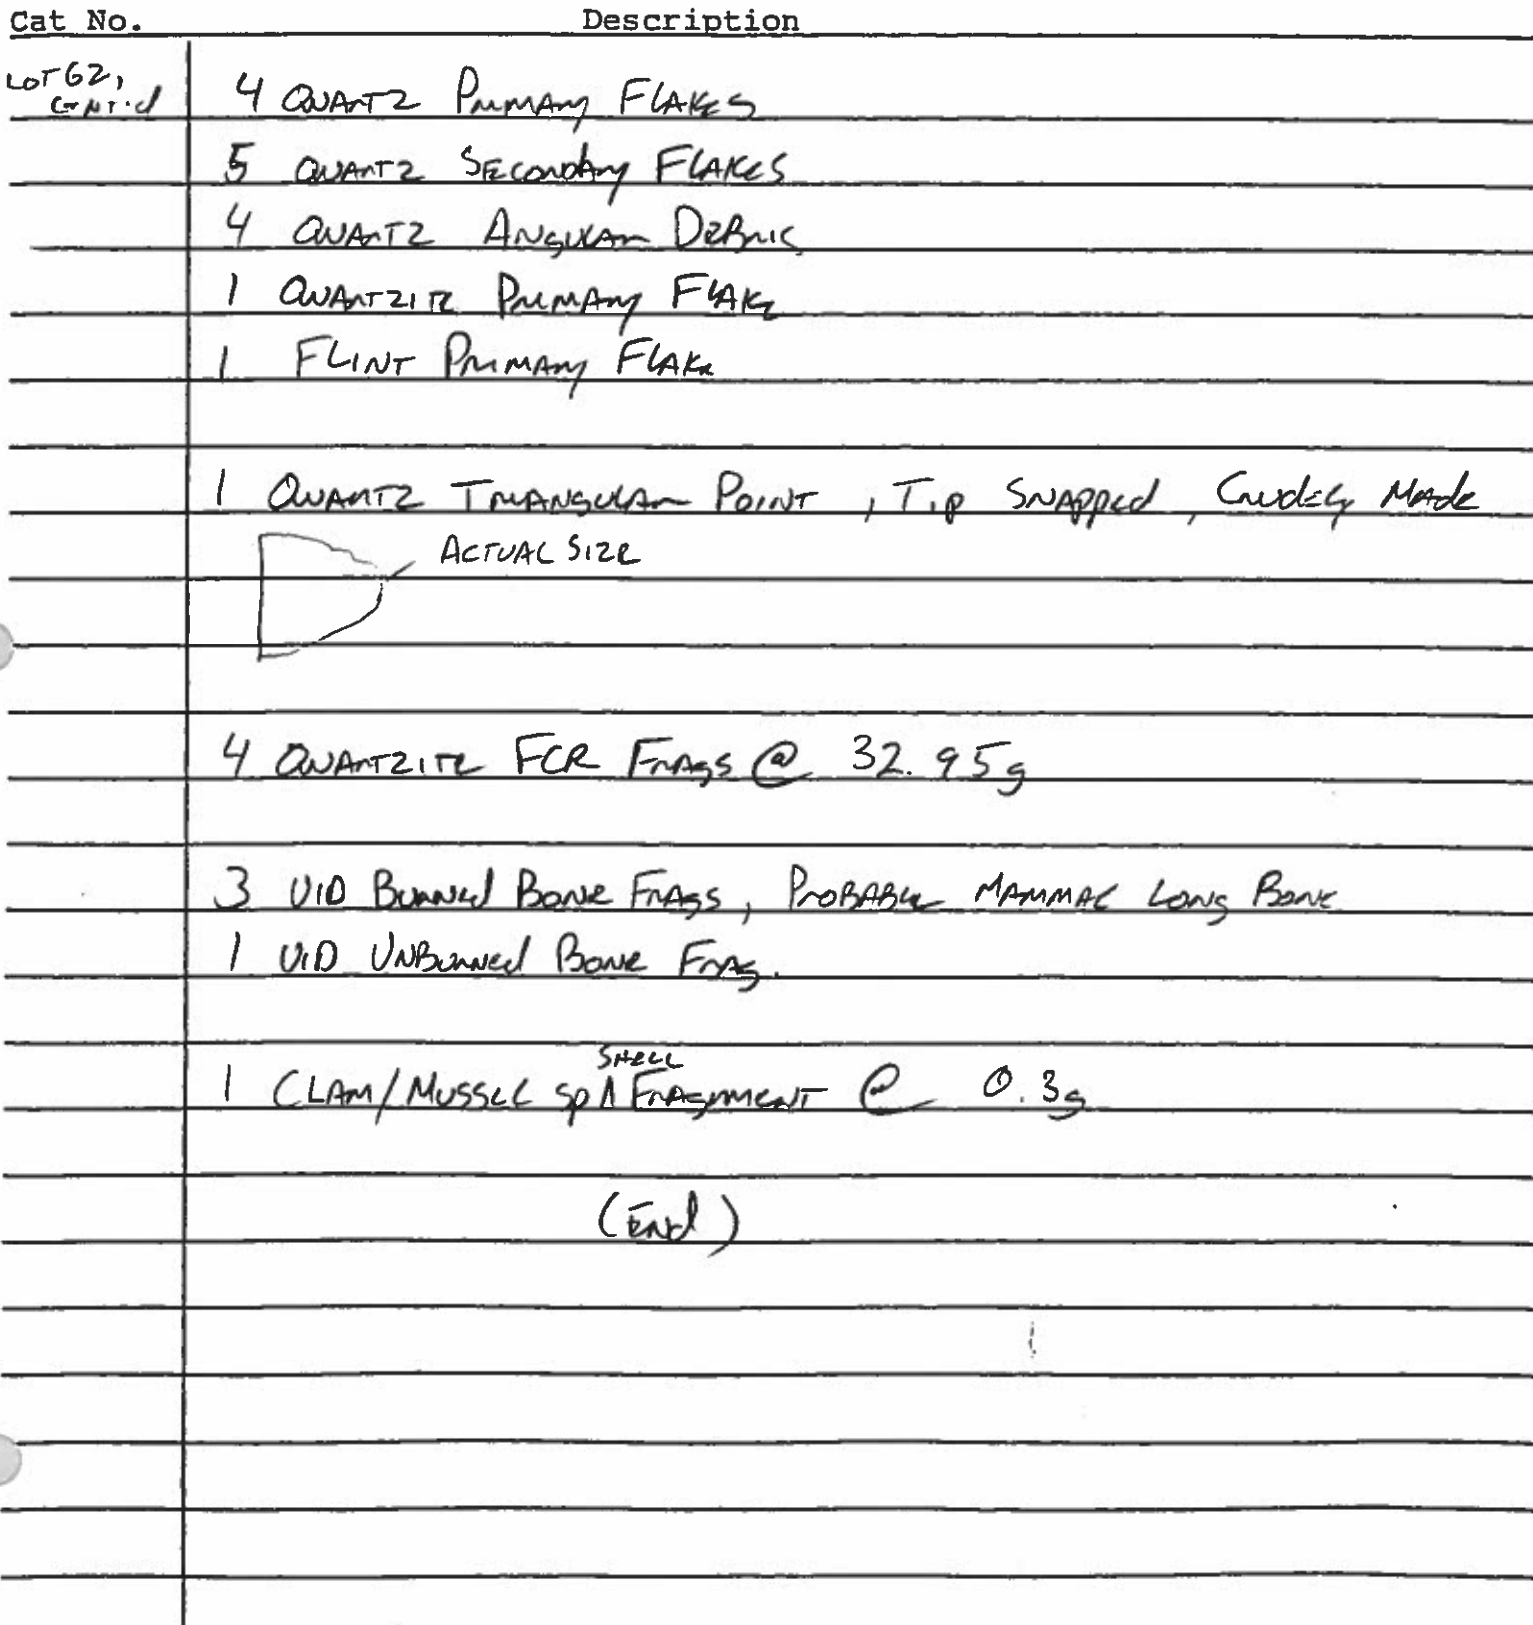 Cat No. Description
LOT 62, 4 QUARTZ PRIMARY FLAKES
CONT'd
5 QUARTZ SECONDARY FLAKES
4 QUARTZ ANGULAR DEBRIS
1 QUARTZITE PRIMARY FLAKE
1 FLINT PRIMARY FLAKE
1 QUARTZ TRIANGULAR POINT, TIP SNAPPED, CRUDELY MADE
ACTUAL SIZE
4 QUARTZITE FCR FRAGS @ 32.95g
3 UID BURNED BONE FRAGS, PROBABLE MAMMAL LONG BONE
1 UID UNBURNED BONE FRAG.
SHELL
1 CLAM/MUSSEL sp ∧ FRAGMENT @ 0.3g
(End)